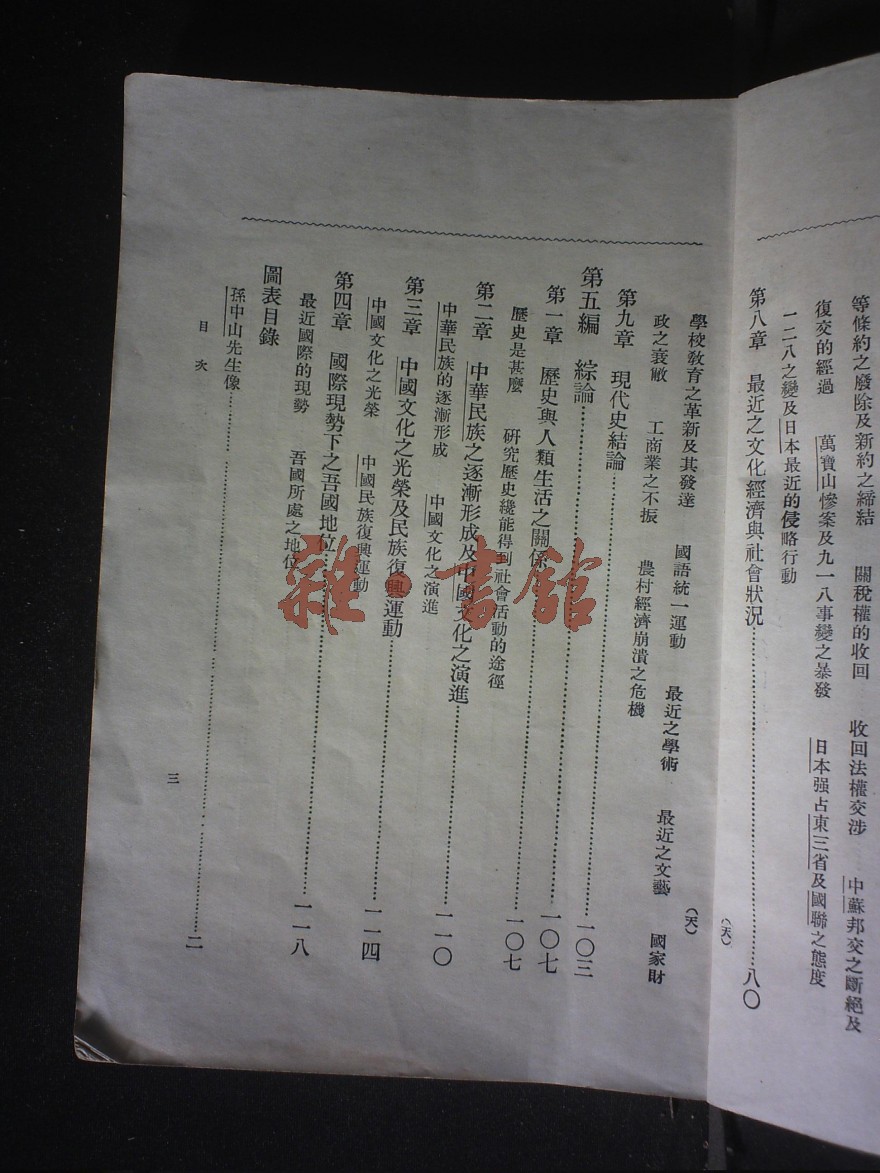 等條約之廢除及新約之締結 關稅權的收回 收回法權交涉 中蘇邦交之斷絕及
復交的經過 萬寶山慘案及九一八事變之暴發 日本强占東三省及國聯之態度
一二八之變及日本最近的侵略行動
第八章 最近之文化經濟與社會狀況……八〇
(天)
學校教育之革新及其發達 國語統一運動 最近之學術 最近之文藝 國家財
政之衰敝 工商業之不振 農村經濟崩潰之危機
(天)
第九章 現代史結論……一〇三
第五編 綜論……一〇七
第一章 歷史與人類生活之關係……一〇七
歷史是甚麼 研究歷史纔能得到社會活動的途徑
第二章 中華民族之逐漸形成及中國文化之演進……一一〇
中華民族的逐漸形成 中國文化之演進
第三章 中國文化之光榮及民族復興運動……一一四
中國文化之光榮 中國民族復興運動
第四章 國際現勢下之吾國地位……一一八
最近國際的現勢 吾國所處之地位
圖表目錄
孫中山先生像……二
目次
三
雜·書館